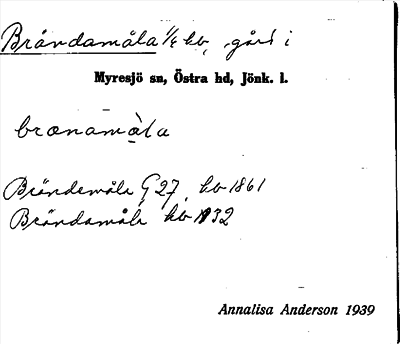 Brändamåla 1/4 hb, gård i
Myresjö sn, Östra hd, Jönk. l.
brænamàla
Brändemåla G 27, kb 1861
Brändamåla kb 1932
Annalisa Anderson 1939